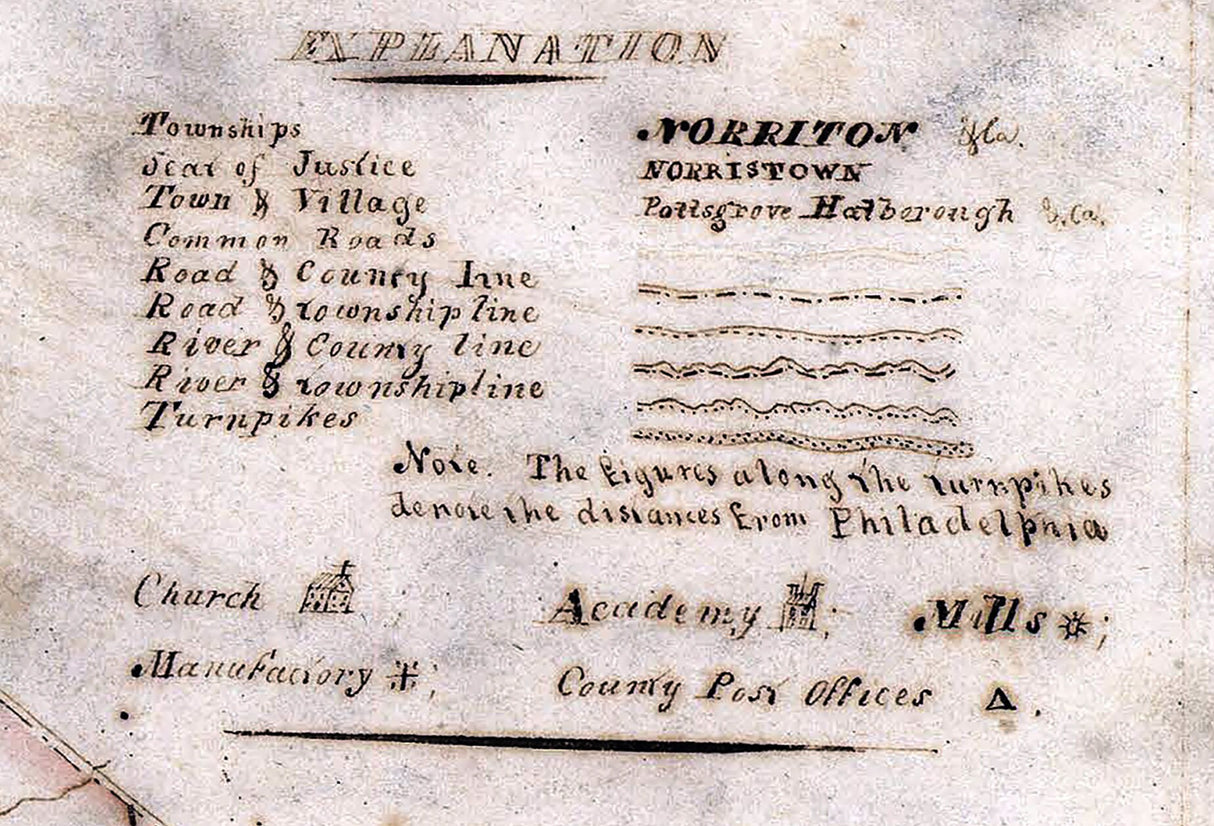 EXPLANATION
Townships NORRITON &Ca.
Seat of Justice NORRISTOWN
Town & Village Pottsgrove Hatborough &.Ca.
Common Roads
Road & County line
Road & township line
River & County line
River & township line
Turnpikes
Note. The figures along the turnpikes
denote the distances from Philadelphia
Church Academy ; Mills ;
Manufactory ; County Post Offices .